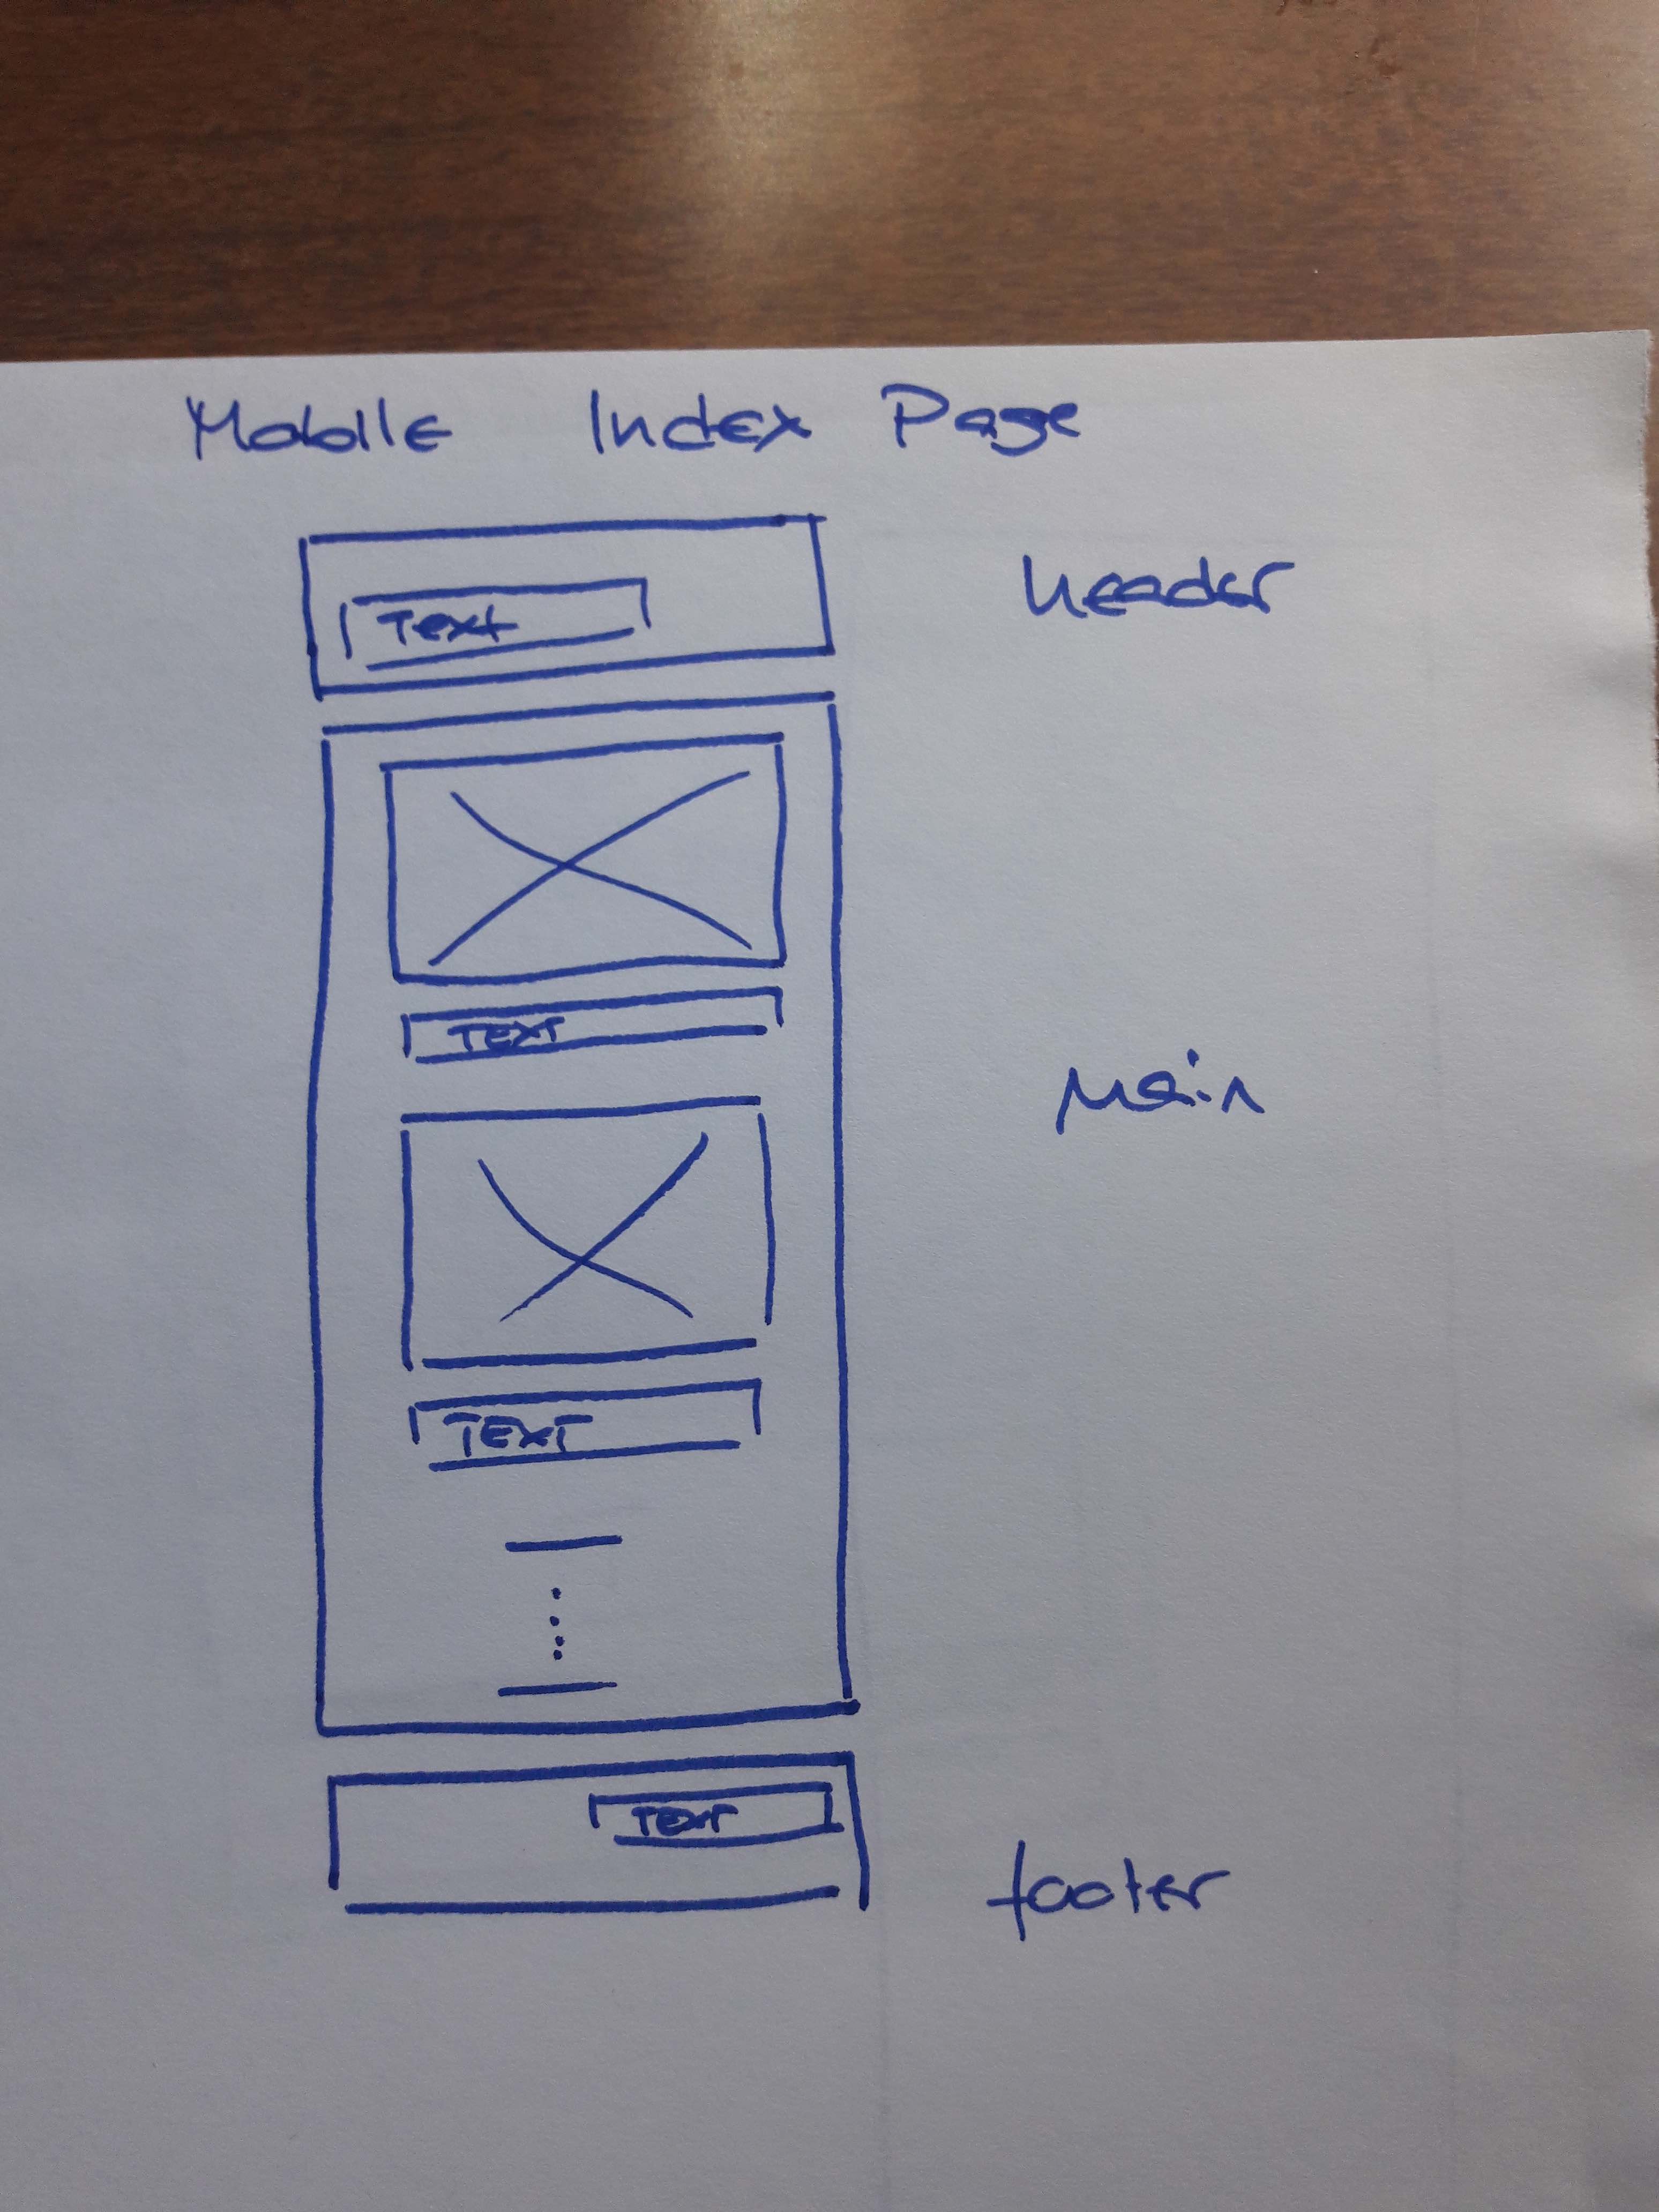 Mobile Index Page
header
Text
TEXT
Main
TEXT
TEXT
footer